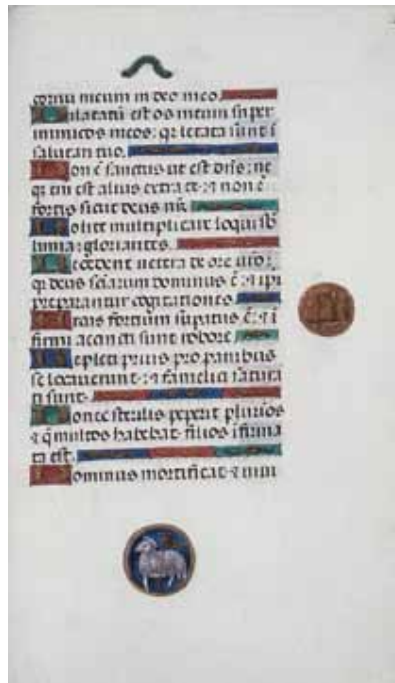 cornu meum in deo meo.
Dilatatū est os meum super
inimicos meos: qr letata sum ī
salutari tuo.
Non ē sanctus ut est dñs: ne
qꝫ eni est alius extra te: ⁊ non ē
fortis sicut deus nr̄.
Nolite multiplicare loqui sb
limia: gloriantes.
Recedent vetera de ore vrō:
qr deus sciarum dominus ē: ⁊ ipi
preparantur cogitationes.
Arcus fortium supatus ē: ⁊ ī
firmi accincti sunt robore.
Repleti prius pro panibus
se locaverunt: ⁊ famelici satura
ti sunt.
Donec sterilis peperit plurīos
⁊ q̄ multos habebat filios ifirma
ta est.
Dominus mortificat ⁊ vivi